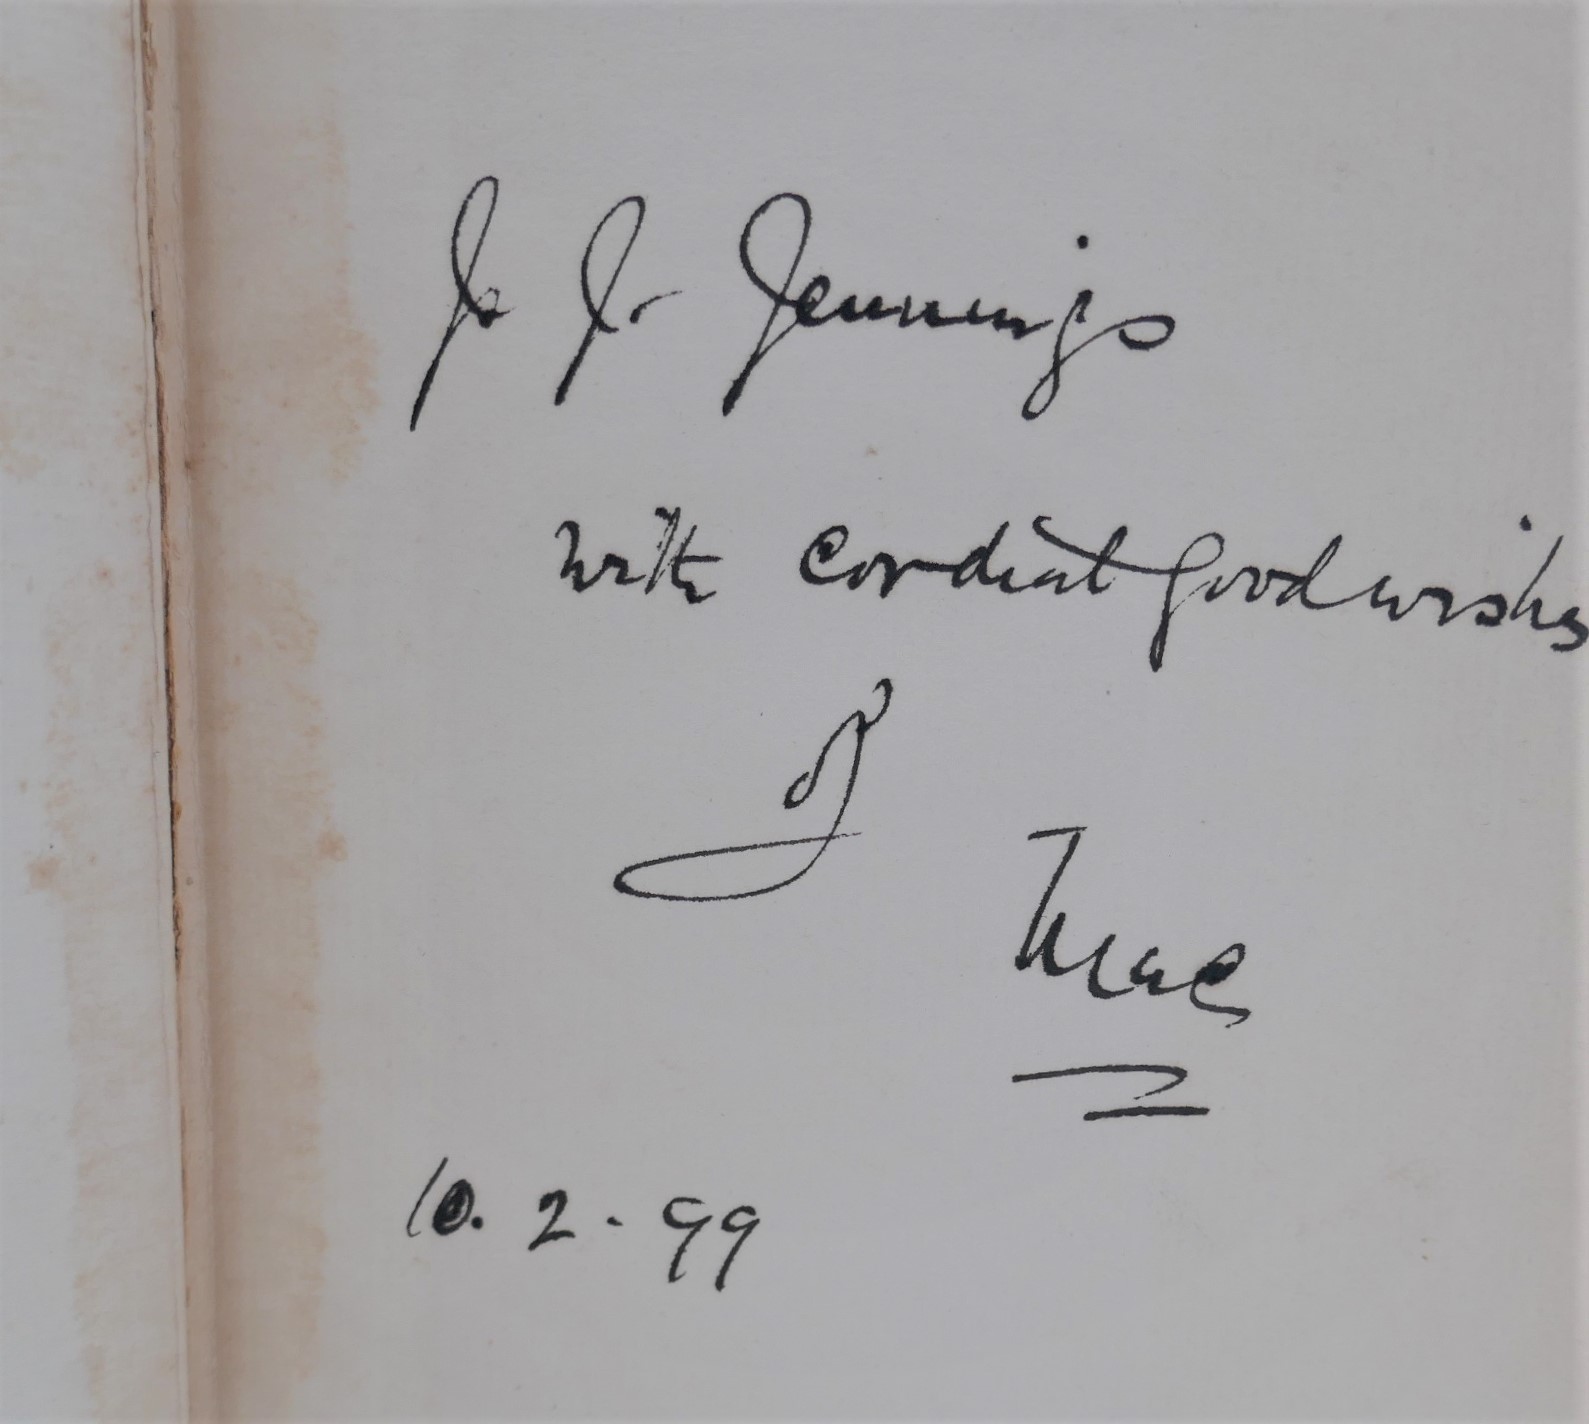 Jennings
with cordial good wishes
of
Mac
10. 2 - 99